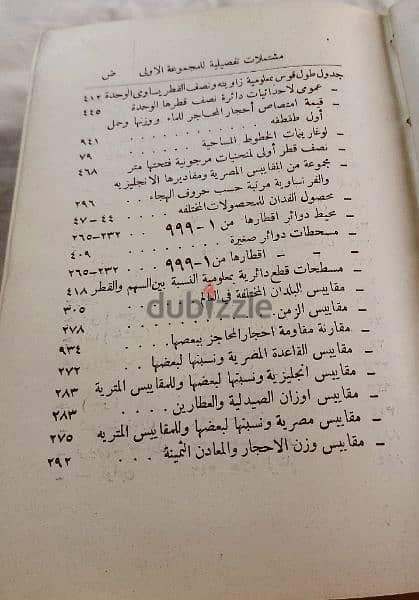 مشتملات تفصيلية للمجموعة الاولى ض
جدول طول قوس بمعلومية زاويته ونصف القطر يساوى الوحدة ٤١٢
– عمومى لاحداثيات دائرة نصف قطرها الوحدة ٤٤٥
– قيمة امتصاص أحجار المحاجر للماء ووزنها وحمل
أول طقطقه . . . . . . . ٩٤١
– لوغاريتمات الخطوط المساحية . . . . ٧٩
– نصف قطر أولى لمنحنيات مرجونية فتحتها متر ٤٦٨
– مجموعة من المقاييس المصرية ومقاديرها الانجليزيه
والفرنساوية مرتبة حسب حروف الهجاء . . ٢٩٦
– محصول الفدان للمحصولات المختلفه . . ٤٤–٤٧
– محيط دوائر اقطارها من ١–٩٩٩ . . ٢٣٢–٢٦٥
– مسطحات دوائر صغيرة . . . . ٤٠٩
– – – اقطارها من ١–٩٩٩ . . ٢٣٢–٢٦٥
– مسطحات قطع دائرية بمعلومية النسبة بين السهم والقطر ٤١٨
– مقاييس البلدان المختلفة فى العالم . . . ٣٠٥
– مقاييس الزمن . . . . . . ٢٧٨
– مقارنة مقاومة احجار المحاجز ببعضها . . ٩٣٤
– مقاييس القاعدة المصرية ونسبتها لبعضها . . ٢٧٢
– مقاييس انجليزية ونسبتها لبعضها وللمقاييس المترية ٢٨٣
– مقاييس اوزان الصيدلية والعطارين . . . . ٢٨٣
– مقاييس مصرية ونسبتها لبعضها وللمقاييس المتريه ٢٧٥
– مقاييس وزن الاحجار والمعادن الثمينة . . . ٢٩٢
dubizzle